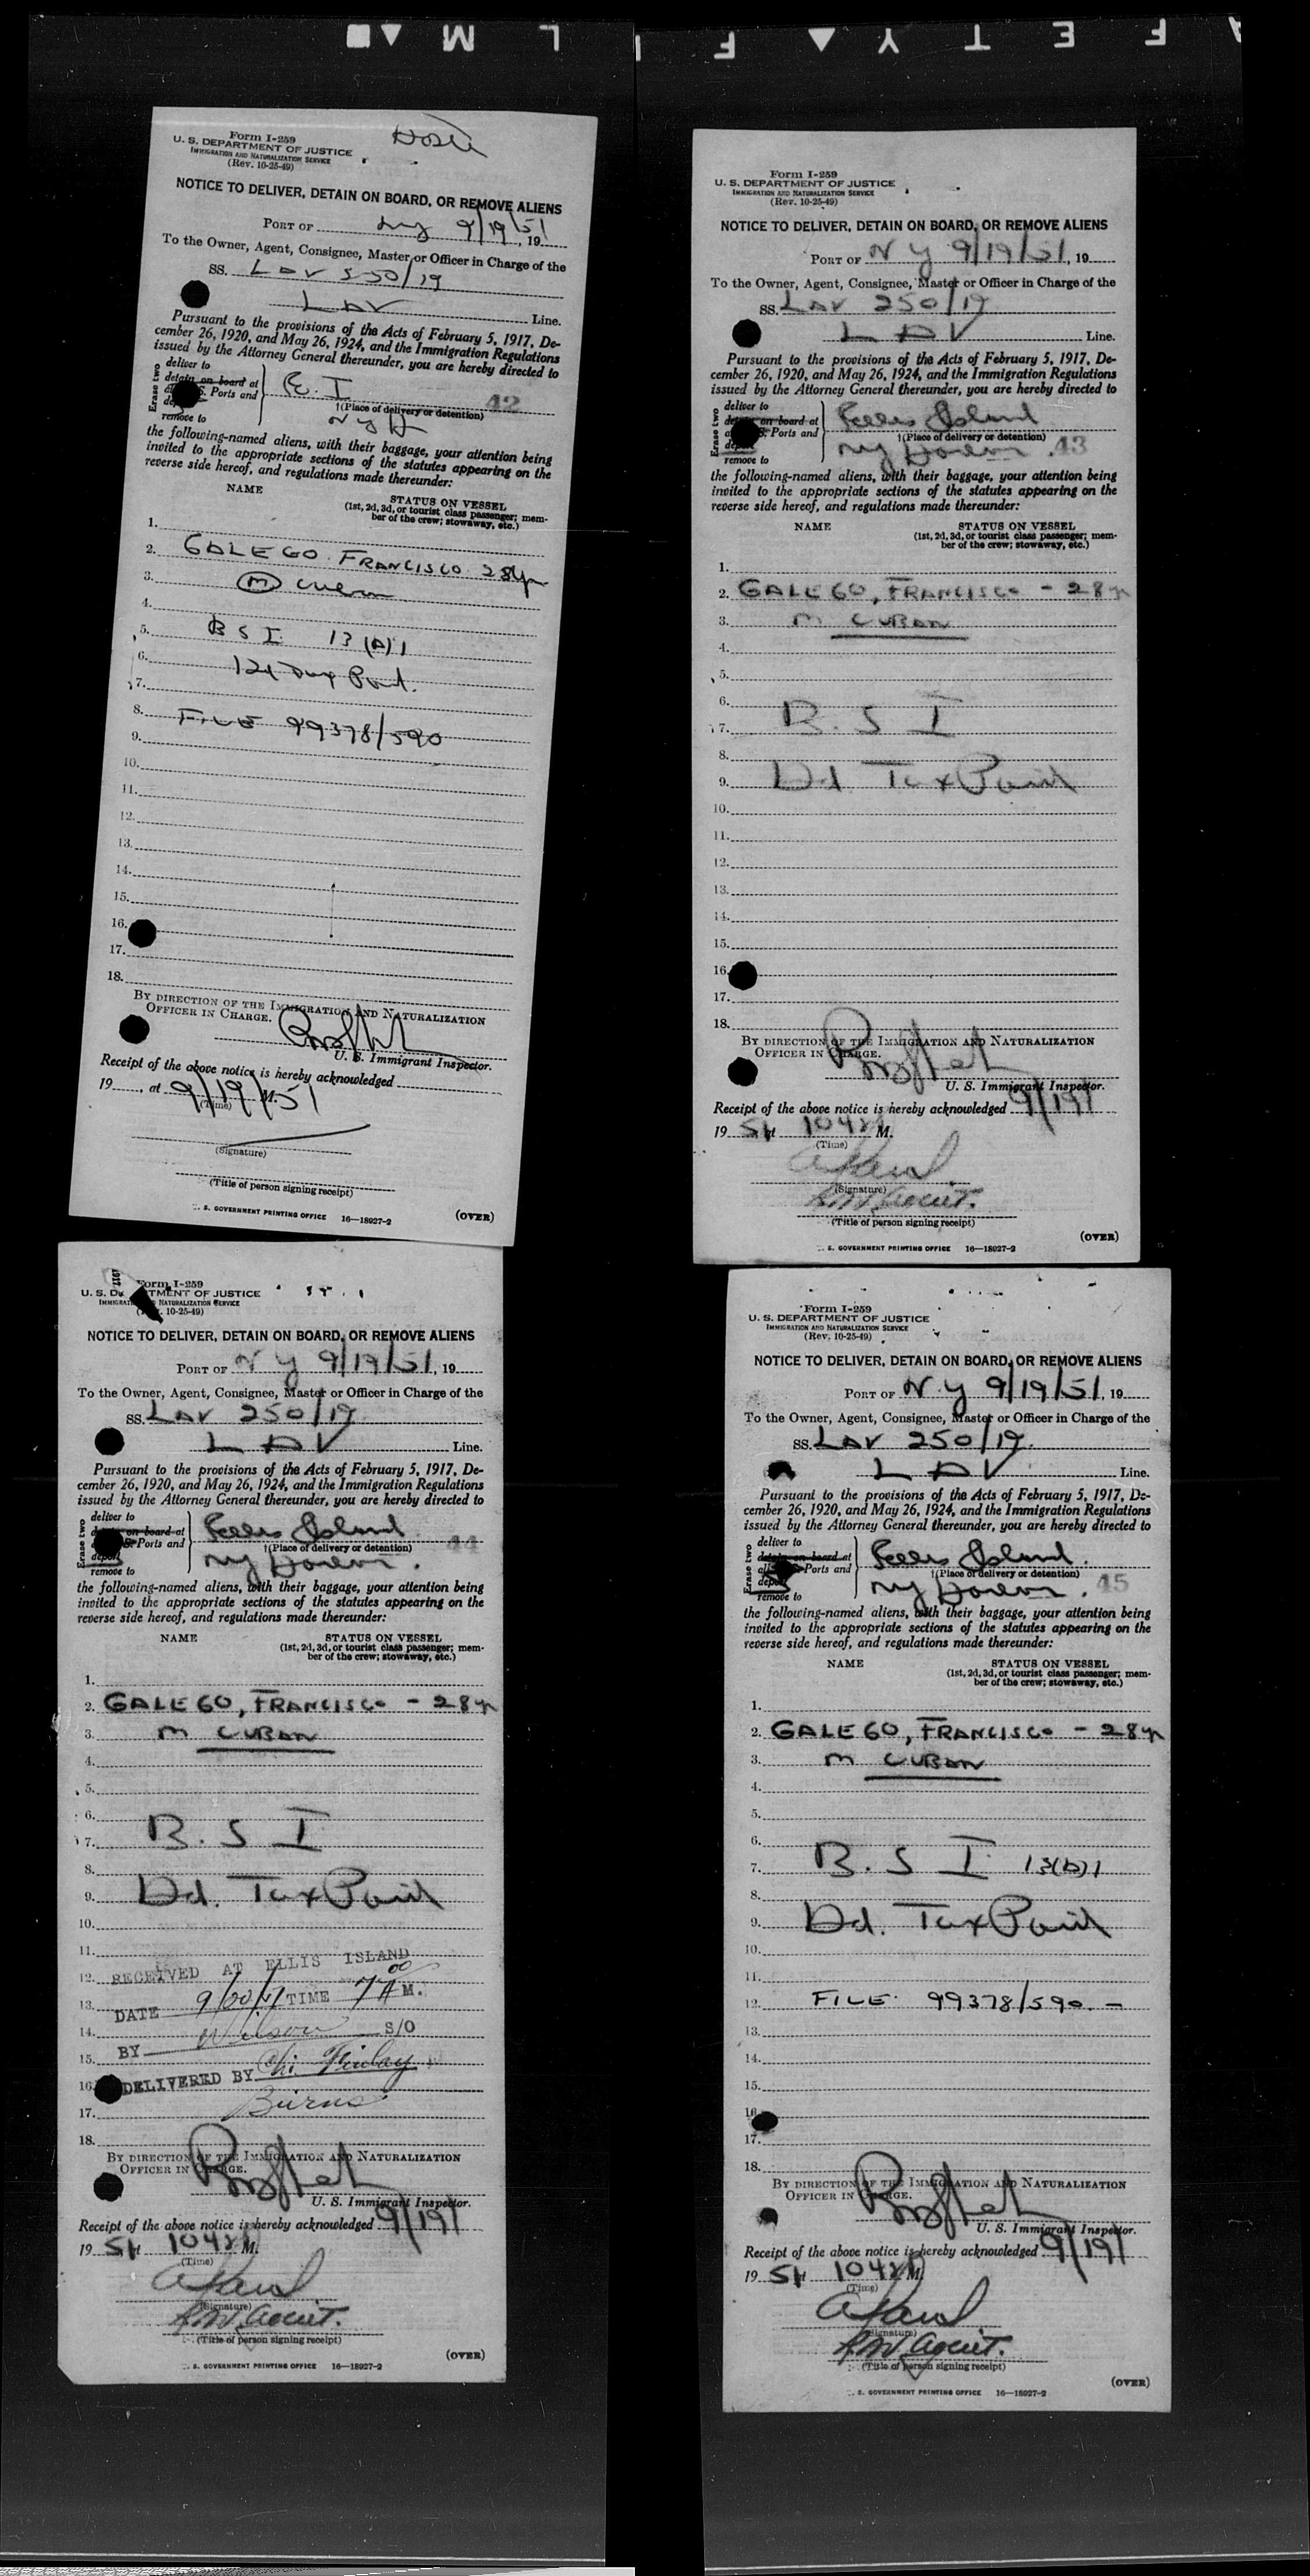 SAFETY FILM
Form I-259
U. S. DEPARTMENT OF JUSTICE
IMMIGRATION AND NATURALIZATION SERVICE
(Rev. 10-25-49)
NOTICE TO DELIVER, DETAIN ON BOARD, OR REMOVE ALIENS
PORT OF NY 9/19/51, 19
To the Owner, Agent, Consignee, Master or Officer in Charge of the
SS. LAV 250/19
LAV Line.
Pursuant to the provisions of the Acts of February 5, 1917, De-
cember 26, 1920, and May 26, 1924, and the Immigration Regulations
issued by the Attorney General thereunder, you are hereby directed to
Erase two
deliver to
detain on board at
S. Ports and
remove to
E. I
†(Place of delivery or detention) 42
NYH
the following-named aliens, with their baggage, your attention being
invited to the appropriate sections of the statutes appearing on the
reverse side hereof, and regulations made thereunder:
NAME STATUS ON VESSEL
(1st, 2d, 3d, or tourist class passenger; mem-
ber of the crew; stowaway, etc.)
1.
2. GALEGO FRANCISCO 28yr
3. M Cuban
4.
5. B S I 13 (A) 1
6.
7.
8. FILE 99378/590
9.
10.
11.
12.
13.
14.
15.
16.
17.
18.
BY DIRECTION OF THE IMMIGRATION AND NATURALIZATION
OFFICER IN CHARGE.
U. S. Immigrant Inspector.
Receipt of the above notice is hereby acknowledged
19 , at 9/19/51 M.
(Time)
(Signature)
(Title of person signing receipt)
U. S. GOVERNMENT PRINTING OFFICE 16—18927-2 (OVER)
Form I-259
U. S. DEPARTMENT OF JUSTICE
IMMIGRATION AND NATURALIZATION SERVICE
(Rev. 10-25-49)
NOTICE TO DELIVER, DETAIN ON BOARD, OR REMOVE ALIENS
PORT OF N Y 9/19/51, 19
To the Owner, Agent, Consignee, Master or Officer in Charge of the
SS. LAV 250/19
LAV Line.
Pursuant to the provisions of the Acts of February 5, 1917, De-
cember 26, 1920, and May 26, 1924, and the Immigration Regulations
issued by the Attorney General thereunder, you are hereby directed to
Erase two
deliver to
on board at
S. Ports and
remove to
Ellis Island
†(Place of delivery or detention)
NY Harbor. 43
the following-named aliens, with their baggage, your attention being
invited to the appropriate sections of the statutes appearing on the
reverse side hereof, and regulations made thereunder:
NAME STATUS ON VESSEL
(1st, 2d, 3d, or tourist class passenger; mem-
ber of the crew; stowaway, etc.)
1.
2. GALEGO, FRANCISCO - 28yr
3. M CUBAN
4.
5.
6.
7. B. S I
8.
9. Hd Tax Paid
10.
11.
12.
13.
14.
15.
16.
17.
18.
BY DIRECTION OF THE IMMIGRATION AND NATURALIZATION
OFFICER IN CHARGE.
U. S. Immigrant Inspector.
Receipt of the above notice is hereby acknowledged 9/19/
19 51 at 1042P M.
(Time)
(Signature)
Agent.
(Title of person signing receipt)
U. S. GOVERNMENT PRINTING OFFICE 16—18927-2 (OVER)
Form I-259
U. S. DEPARTMENT OF JUSTICE
IMMIGRATION AND NATURALIZATION SERVICE
(Rev. 10-25-49)
NOTICE TO DELIVER, DETAIN ON BOARD, OR REMOVE ALIENS
PORT OF N Y 9/19/51, 19
To the Owner, Agent, Consignee, Master or Officer in Charge of the
SS. LAV 250/19
LAV Line.
Pursuant to the provisions of the Acts of February 5, 1917, De-
cember 26, 1920, and May 26, 1924, and the Immigration Regulations
issued by the Attorney General thereunder, you are hereby directed to
Erase two
deliver to
on board at
S. Ports and
deport
remove to
Ellis Island
†(Place of delivery or detention) 44
NY Harbor.
the following-named aliens, with their baggage, your attention being
invited to the appropriate sections of the statutes appearing on the
reverse side hereof, and regulations made thereunder:
NAME STATUS ON VESSEL
(1st, 2d, 3d, or tourist class passenger; mem-
ber of the crew; stowaway, etc.)
1.
2. GALEGO, FRANCISCO - 28yr
3. M CUBAN
4.
5.
6.
7. B. S I
8.
9. Hd. Tax Paid
10.
11.
12. RECEIVED AT ELLIS ISLAND
13. DATE 9/20/51 TIME 7 00 A M.
14. BY Wilson S/O
15.
16. DELIVERED BY Chi. Finlay
17. Burns
18.
BY DIRECTION OF THE IMMIGRATION AND NATURALIZATION
OFFICER IN CHARGE.
U. S. Immigrant Inspector.
Receipt of the above notice is hereby acknowledged 9/19/
19 51 at 1042P M.
(Time)
(Signature)
Agent.
(Title of person signing receipt)
U. S. GOVERNMENT PRINTING OFFICE 16—18927-2 (OVER)
Form I-259
U. S. DEPARTMENT OF JUSTICE
IMMIGRATION AND NATURALIZATION SERVICE
(Rev. 10-25-49)
NOTICE TO DELIVER, DETAIN ON BOARD, OR REMOVE ALIENS
PORT OF N.Y 9/19/51, 19
To the Owner, Agent, Consignee, Master or Officer in Charge of the
SS. LAV 250/19.
LAV Line.
Pursuant to the provisions of the Acts of February 5, 1917, De-
cember 26, 1920, and May 26, 1924, and the Immigration Regulations
issued by the Attorney General thereunder, you are hereby directed to
Erase two
deliver to
detain on board at
all U. S. Ports and
deport
remove to
Ellis Island.
†(Place of delivery or detention)
NY Harbor. 45
the following-named aliens, with their baggage, your attention being
invited to the appropriate sections of the statutes appearing on the
reverse side hereof, and regulations made thereunder:
NAME STATUS ON VESSEL
(1st, 2d, 3d, or tourist class passenger; mem-
ber of the crew; stowaway, etc.)
1.
2. GALEGO, FRANCISCO - 28yr
3. M CUBAN
4.
5.
6.
7. B. S I 13(A)1
8.
9. Hd. Tax Paid
10.
11.
12. FILE 99378/590.-
13.
14.
15.
16.
17.
18.
BY DIRECTION OF THE IMMIGRATION AND NATURALIZATION
OFFICER IN CHARGE.
U. S. Immigrant Inspector.
Receipt of the above notice is hereby acknowledged 9/19/
19 51 at 1042P M.
(Time)
(Signature)
Agent.
(Title of person signing receipt)
U. S. GOVERNMENT PRINTING OFFICE 16—18927-2 (OVER)